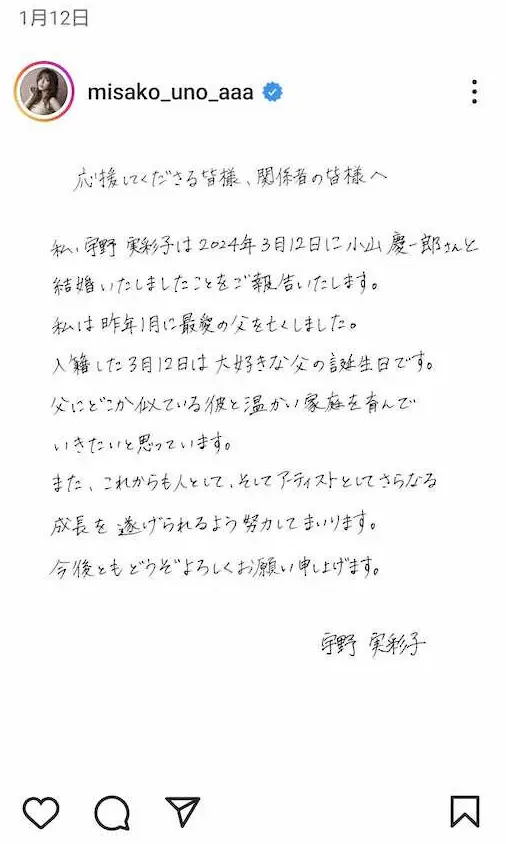 1月12日
misako_uno_aaa
応援してくださる皆様、関係者の皆様へ
私、宇野 実彩子は2024年3月12日に小山 慶一郎さんと
結婚いたしましたことをご報告いたします。
私は昨年1月に最愛の父を亡くしました。
入籍した3月12日は大好きな父の誕生日です。
父にどこか似ている彼と温かい家庭を育んで
いきたいと思っています。
また、これからも人として、そしてアーティストとしてさらなる
成長を遂げられるよう努力してまいります。
今後ともどうぞよろしくお願い申し上げます。
宇野 実彩子